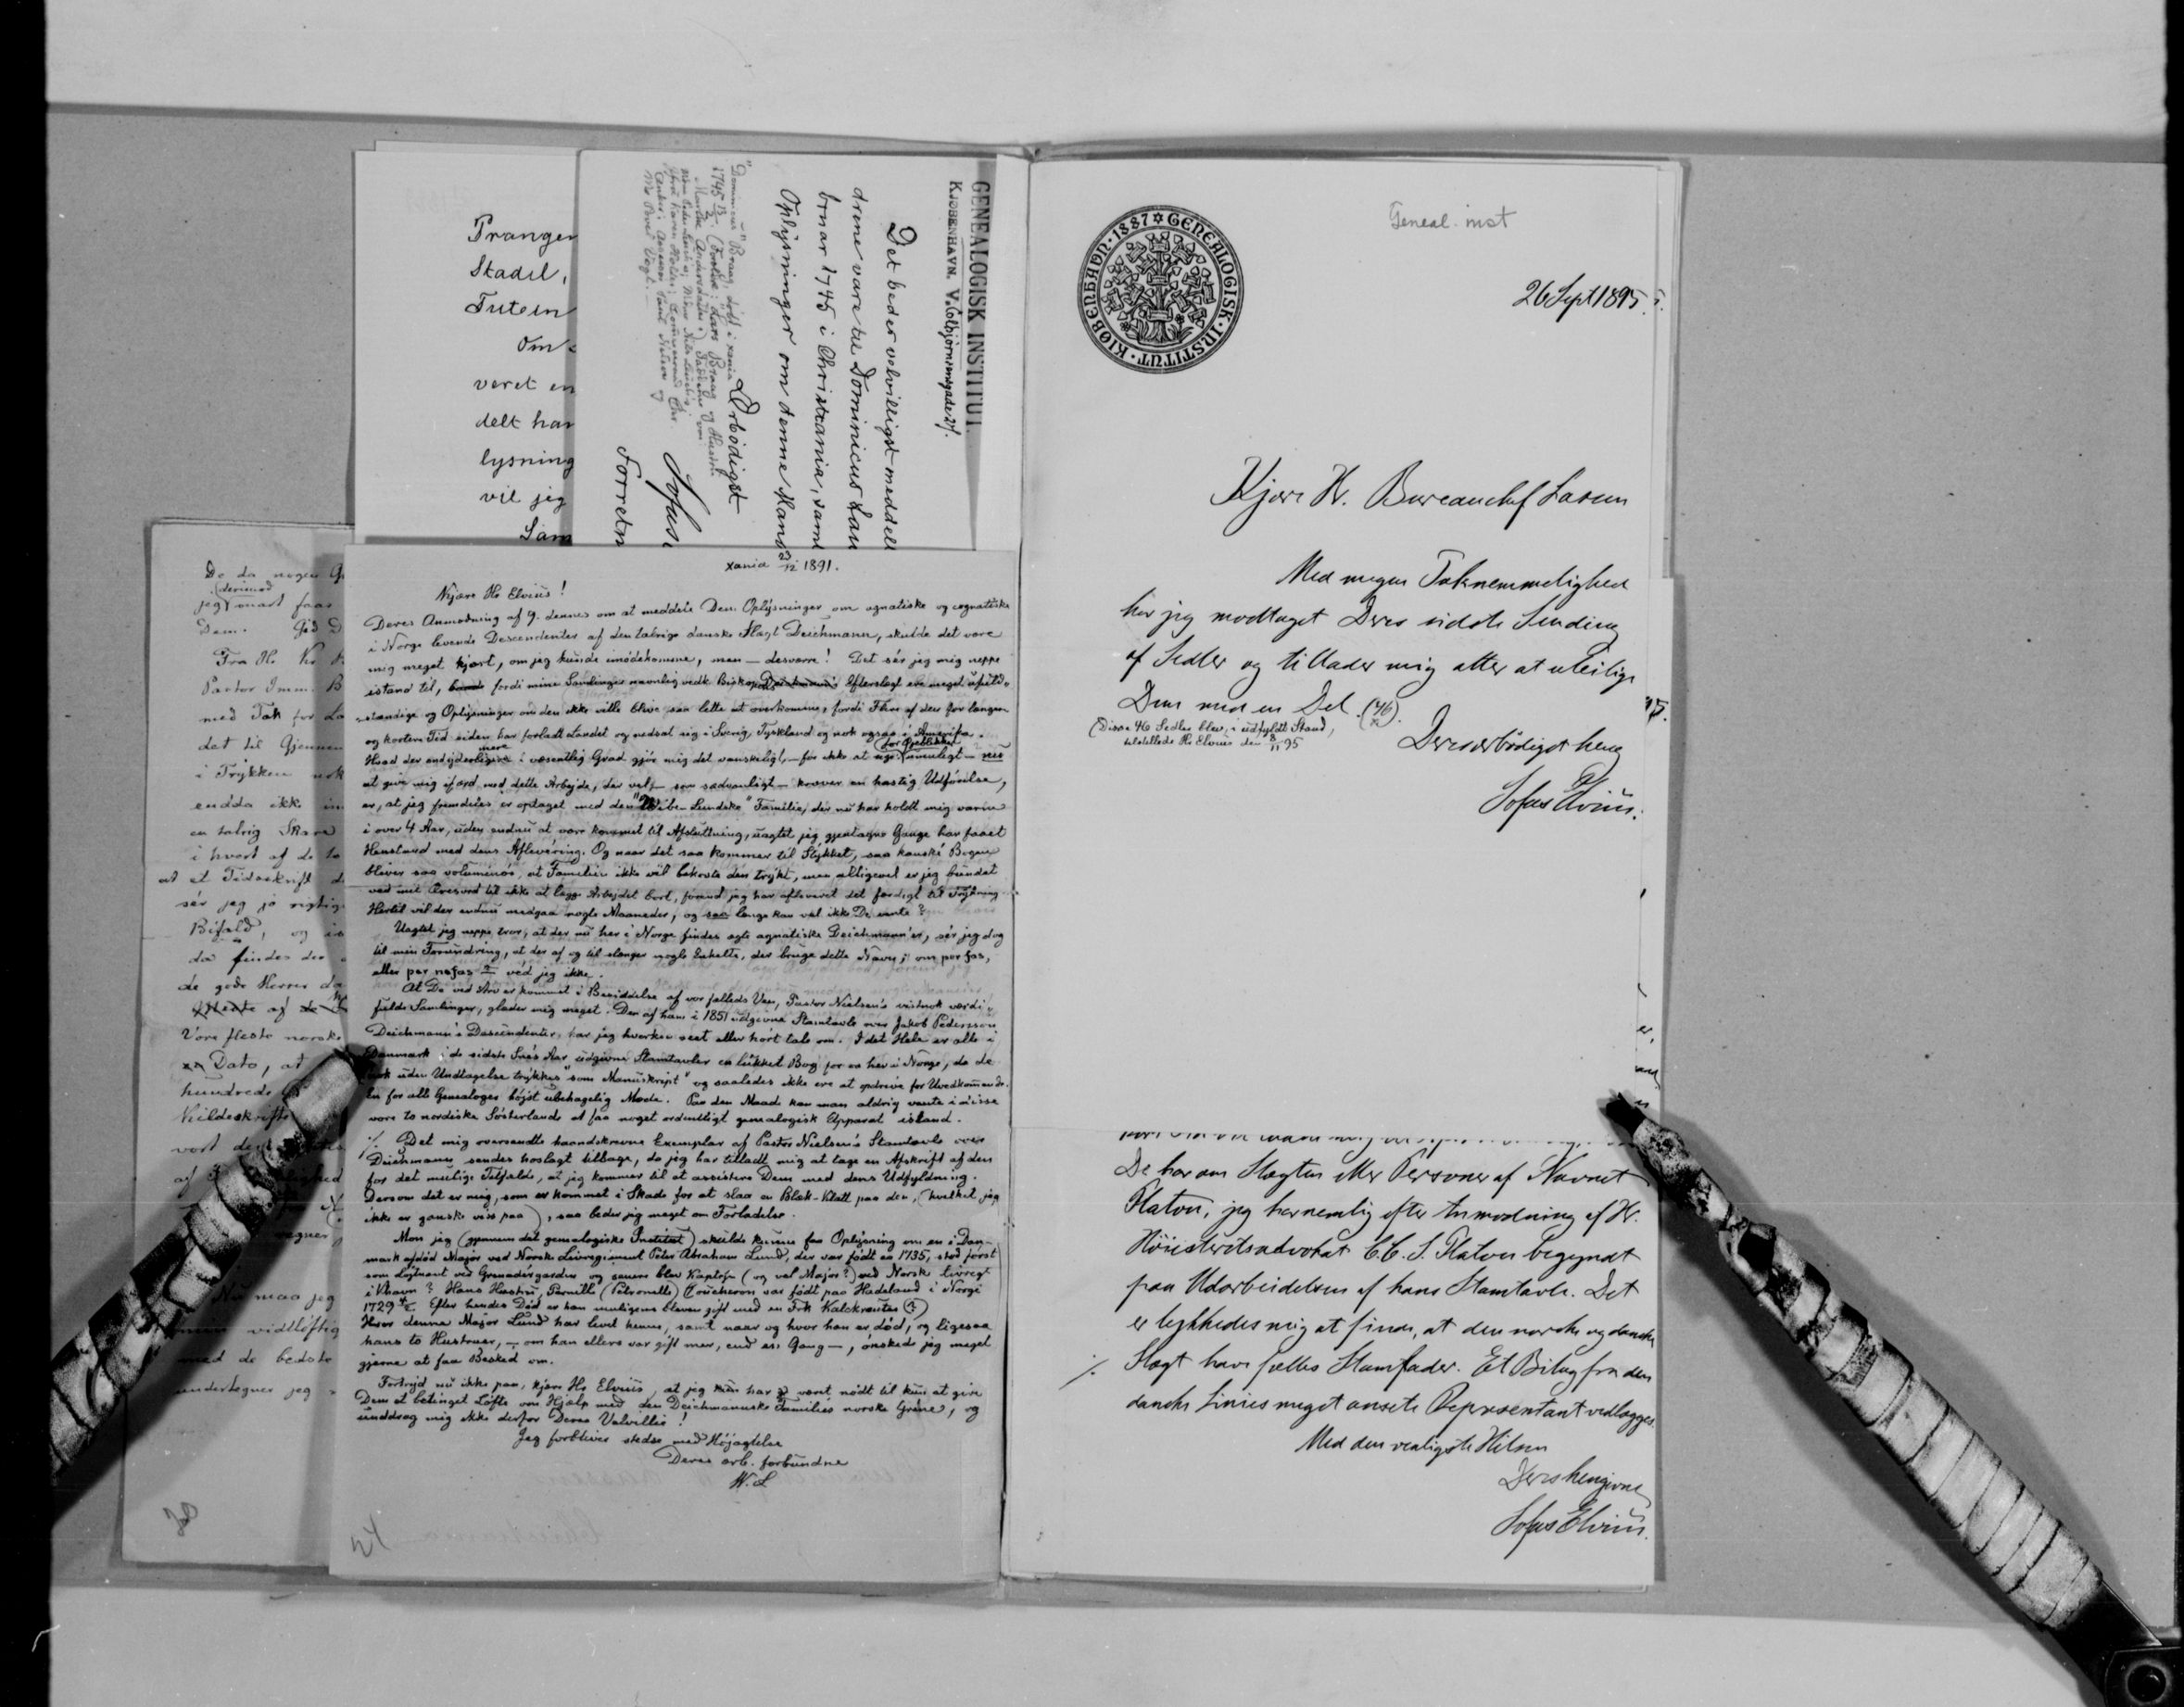 Prangen
Stadil,
Tutein
Om
været en
delt har
lysning
vil jeg
Sam
GENEALOGISK INSTITUT.
KJØBENHAVN. V. Colbjørnsensgade 27.
Det bedes velvilligst meddelt
drene vare til Dominicus Lau
bruar 1745 i Christiania, samt
Oplysninger om denne Mand
Ærbødigst
Sofus
Forretn
"Dominicus" Braag, døbt i Xania
1745 (Forældre: Lars Braag og Hustru
De da nogen
(derimod
jeg snart faar
Dem. Gid D
Fra Hr.
Pastor Imm. B
med Tak for La
det til Gjennem
i Trykken nok
endda ikke
en talrig Skare
i hvert af de to
at et Tidsskrift d
sér jeg jo rigtig
Bifald, og
da findes der
de gode Herrer da
Vore fleste norske
Dato, at
hundrede
Kildeskrifte
vort
af
vegner,
Nu maa jeg
vidtløftig
med de bedste
undertegner jeg
Xania 23/12 1891.
Kjære Hr Elvius!
Deres Anmodning af 9. dennes om at meddele Dem Oplysninger om agnatiske og cognatiske
i Norge levende Descendenter af den talrige danske Slægt Deichmann, skulde det være
mig meget kjært, om jeg kunde imødekomme, men – desværre! Det sér jeg mig neppe
istand til, fordi mine Samlinger navnlig vedk. Biskop Deichmann's Efterslægt ere meget ufuld-
stændige og Oplysninger om den ikke ville blive saa lette at overkomme, fordi Flere af den for længere
og kortere Tid siden har forladt Landet og nedsat sig i Sverig, Tyskland og nok ogsaa i Amerika.
Hvad der endvidere mere i væsentlig Grad gjør mig det vanskeligt, – for ikke at sige (for Øieblikket) umuligt – nu
at give mig ifærd med dette Arbejde, der vel – som sædvanligt – kræver en hastig Udførelse,
er, at jeg fremdeles er optaget med den "Wibe-Lundske" Familie, der nu har holdt mig varm
i over 4 Aar, uden endnu at være kommet til Afslutning, uagtet jeg gjentagne Gange har faaet
Henstand med dens Aflevering. Og naar det saa kommer til Stykket, saa kanské Bogen
bliver saa voluminøs, at Familien ikke vil bekoste den trykt, men alligevel er jeg bundet
ved mit Æresord til ikke at lægge Arbejdet bort, førend jeg har afleveret det færdigt til Trykning.
Hertil vil der endnu medgaa nogle Maaneder, og saa længe kan vel ikke De vente?
Uagtet jeg neppe tror, at der nu her i Norge findes ægte agnatiske Deichmann'er, sér jeg dog
til min Forundring, at der af og til slænger nogle Enkelte, der bruge dette Navn; om per fas,
eller per nefas – véd jeg ikke.
At De ved Arv er kommet i Besiddelse af vor fælleds Ven, Pastor Nielsen's vistnok værdi-
fulde Samlinger, glæder mig meget. Den af ham i 1851 udgivne Stamtavle over Jakob Pedersson
Deichmann's Descendenter, har jeg hverken seet eller hørt tale om. I det Hele er alle i
Danmark i de sidste Aar udgivne Stamtavler en lukket Bog for os her i Norge, da de
nok uden Undtagelse trykkes "som Manuskript" og saaledes ikke ere at opdrive for Uvedkommende.
En for alle Genealoger højst ubehagelig Maade. Paa den Maade kan man aldrig vente i disse
vore to nordiske Søsterlande at faa noget ordentligt genealogisk Apparat istand.
./. Det mig oversendte haandskrevne Exemplar af Pastor Nielsen's Stamtavle over
Deichmann sendes hoslagt tilbage, da jeg har tilladt mig at tage en Afskrift af den
for det mulige Tilfælde, at jeg kommer til at assistere Dem med dens Udfyldning.
Dersom det er mig, som er kommet i Skade for at slaa en Blæk-Klatt paa den, (hvilket jeg
ikke er ganske viss paa), saa beder jeg meget om Forladelse.
Mon jeg (gjennem det genealogiske Institut) skulde kunne faa Oplysning om en i Dan-
mark afdød Major ved Norske Livregiment Peter Abraham Lund, der var født ca 1735, stod først
som Løjtnant ved Grenadérgarden og senere blev Kaptejn (og vel Major?) ved Norsk Livregt
i Khavn? Hans Hustru, Pernille (Petronelle) Coucheron var født paa Hadeland i Norge
1729. Efter hendes Død er han muligens bleven gift med en Frk Kalckreuter (?)
Hvor denne Major Lund har levet henne, samt naar og hvor han er død, og ligesaa
hans to Hustruer, – om han ellers var gift mer, end én Gang –, ønskede jeg meget
gjerne at faa Besked om.
Fortryd nu ikke paa, kjære Hr Elvius, at jeg kun har været nødt til kun at give
Dem et betinget Løfte om Hjælp med den Deichmannske Familiés norske Grene, og
unddrag mig ikke derfor Deres Velvillie!
Jeg forbliver stedse med Højagtelse
Deres ærb. forbundne
W. L
Geneal. inst
KJØBENHAVN · 1887 ✡ GENEALOGISK · INSTITUT ·
26 Sept 1895.
Kjære Hr. Bureauchef Lassen
Med megen Taknemmelighed
har jeg modtaget Deres sidste Sending
af Sedler og tillader mig atter at uleilige
Dem med en Del. (46).
(Disse 46 Sedler blev, i udfyldt Stand,
tilstillede Hr Elvius den 8/11 95
Deres ærbødigst heng
Sofus Elvius.
De har om Slægten eller Personer af Navnet
Platou, jeg har nemlig efter Anmodning af Hr.
Høiesteretsadvokat C.C.S. Platou begyndt
paa Udarbeidelsen af hans Stamtavle. Det
er lykkedes mig at finde, at den norske og danske
./. Slægt have fælles Stamfader. Et Bilag fra den
danske Linies meget ansete Repræsentant vedlægges.
Med den venligste Hilsen
Deres hengivne
Sofus Elvius.